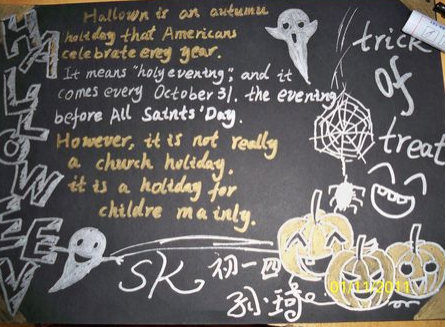 HALLOWEEN
Hallown is an autumn
holiday that Americans
celebrate erey year.
It means "holy evening", and it
comes every October 31. the evening
before All Saints' Day.
However, it is not really
a church holiday.
it is a holiday for
childre mainly.
trick
of
treat
SK 初一四
孙琦
01/11/2011